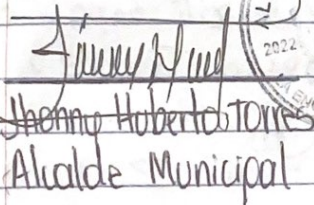 2022
Jhonny Huberto Torres
Alcalde Municipal